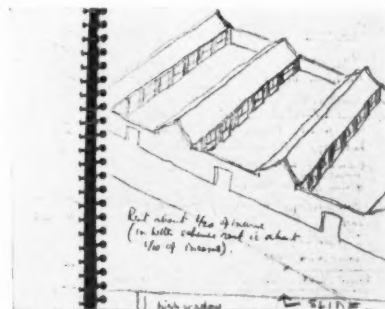 Rent about 1/20 of income
(in both schemes rent is about
1/10 of income).
high window
← SLIDE